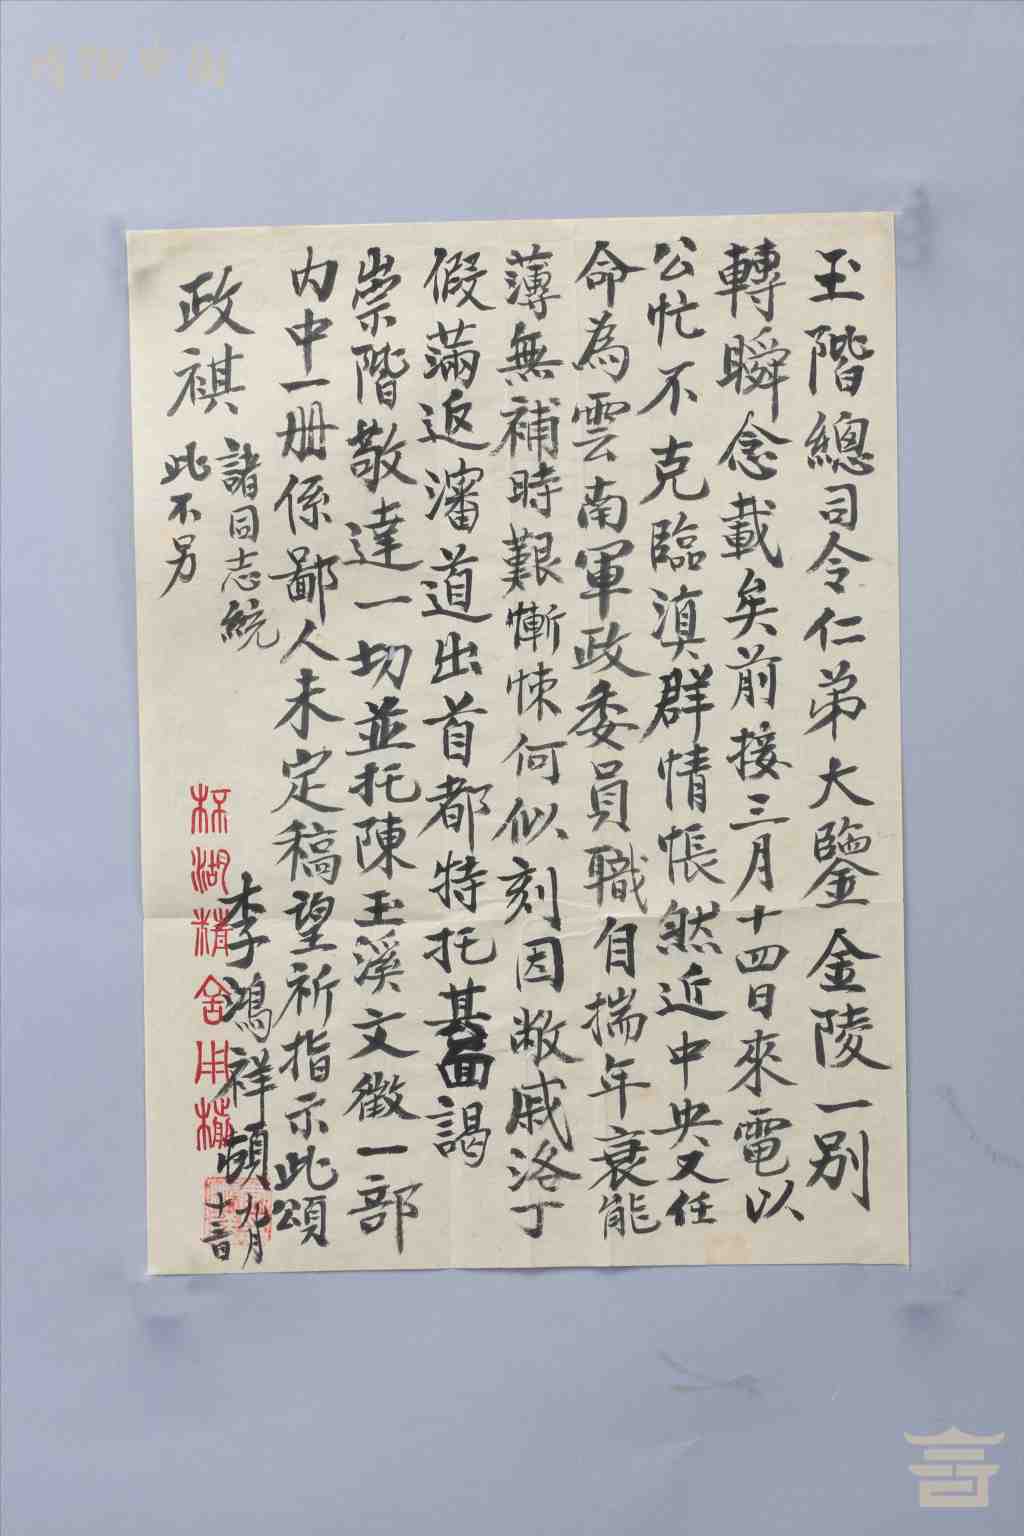 玉階總司令仁弟大鑒金陵一別
轉瞬念載矣前接三月十四日來電以
公忙不克臨滇群情悵然近中央又任
命為雲南軍政委員職自揣年衰能
薄無補時艱慚悚何似刻因敝戚洛丁
假滿返瀋道出首都特托其面謁
崇階敬達一切並托陳玉溪文徵一部
內中一册係鄙人未定稿望祈指示此頌
政祺
諸同志統
此不另
李鴻祥頓
九月
十二日
湖精舍用牋